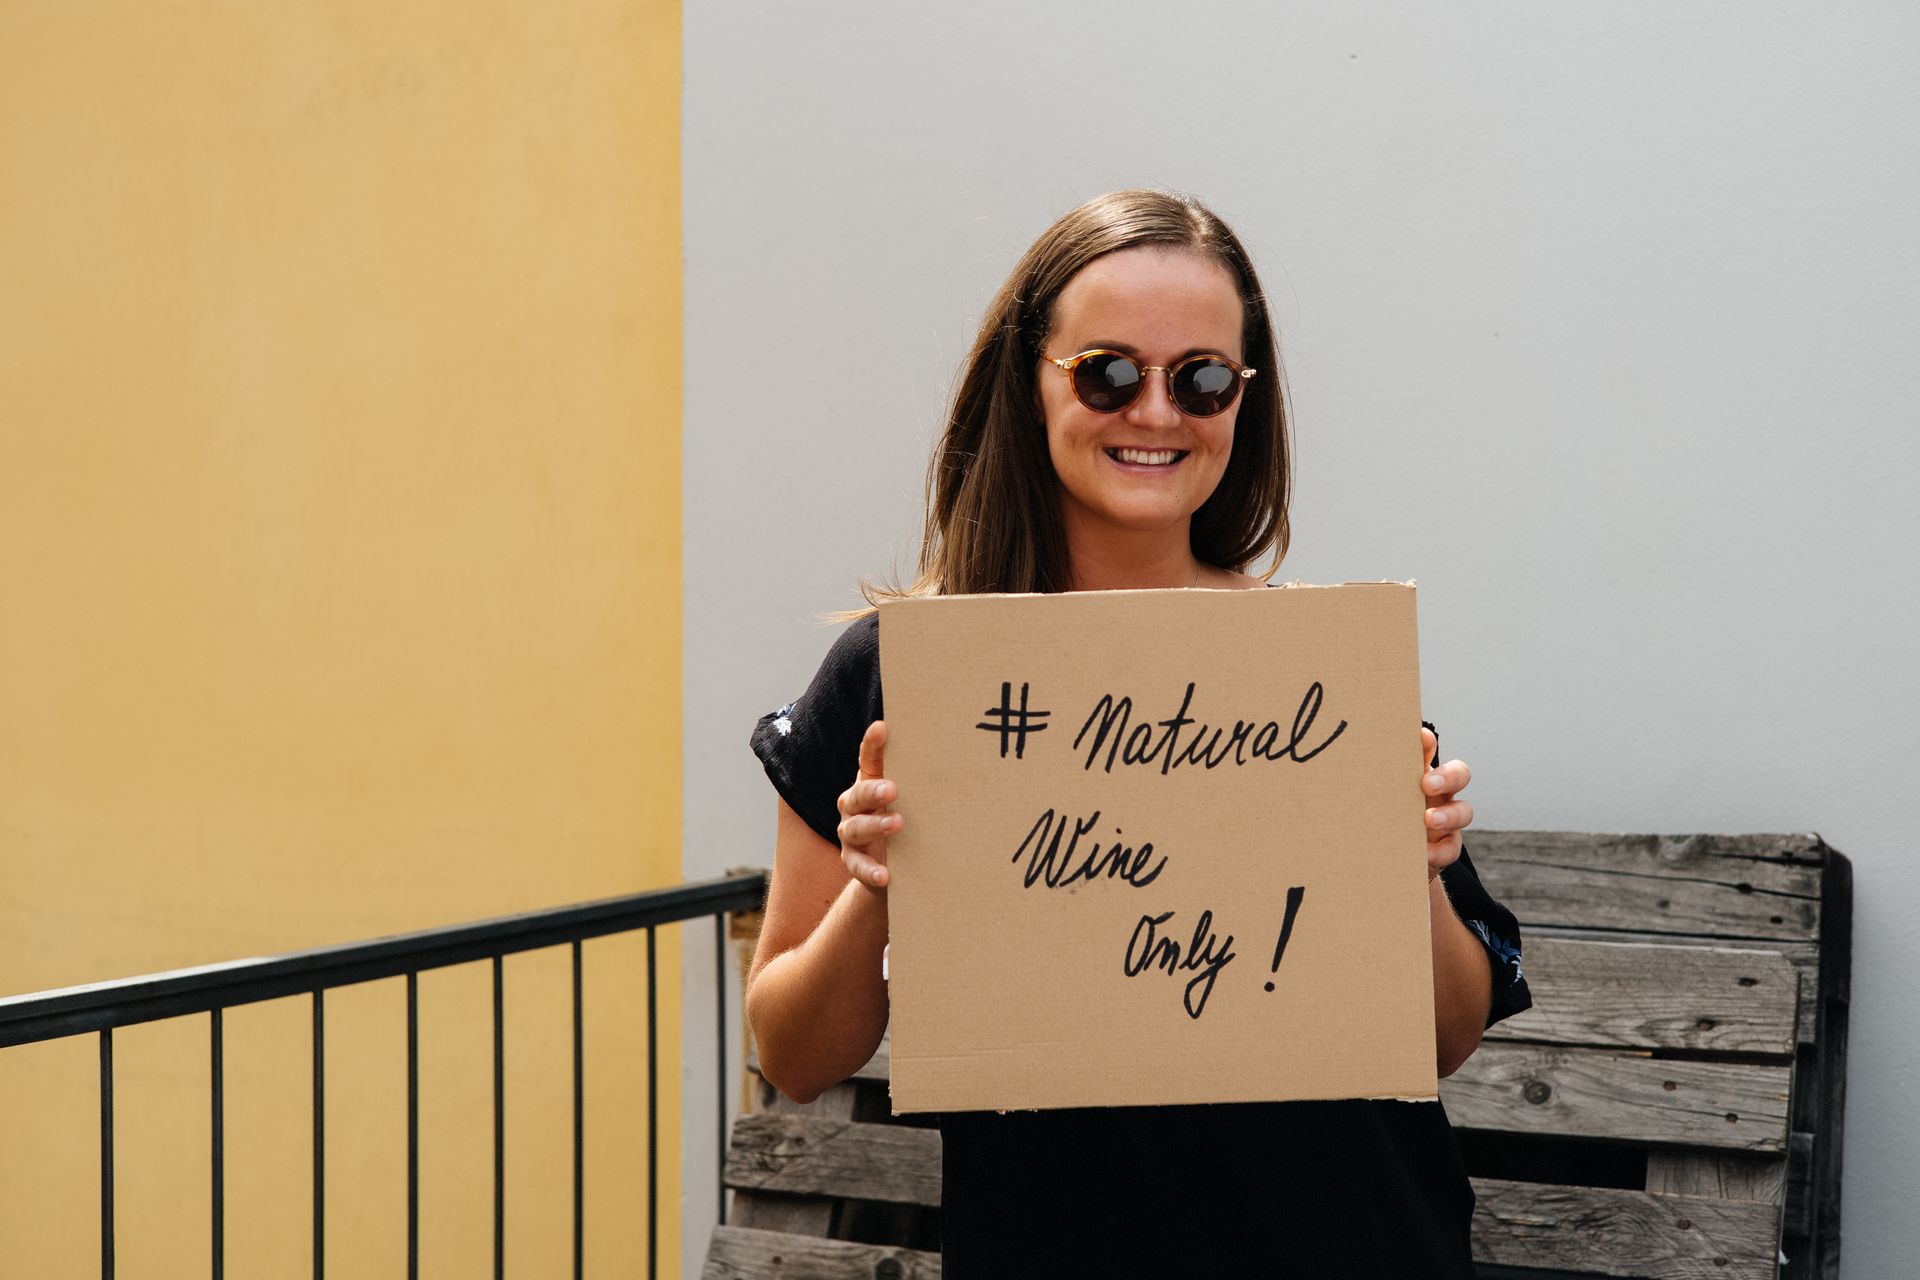 # Natural
Wine
Only!